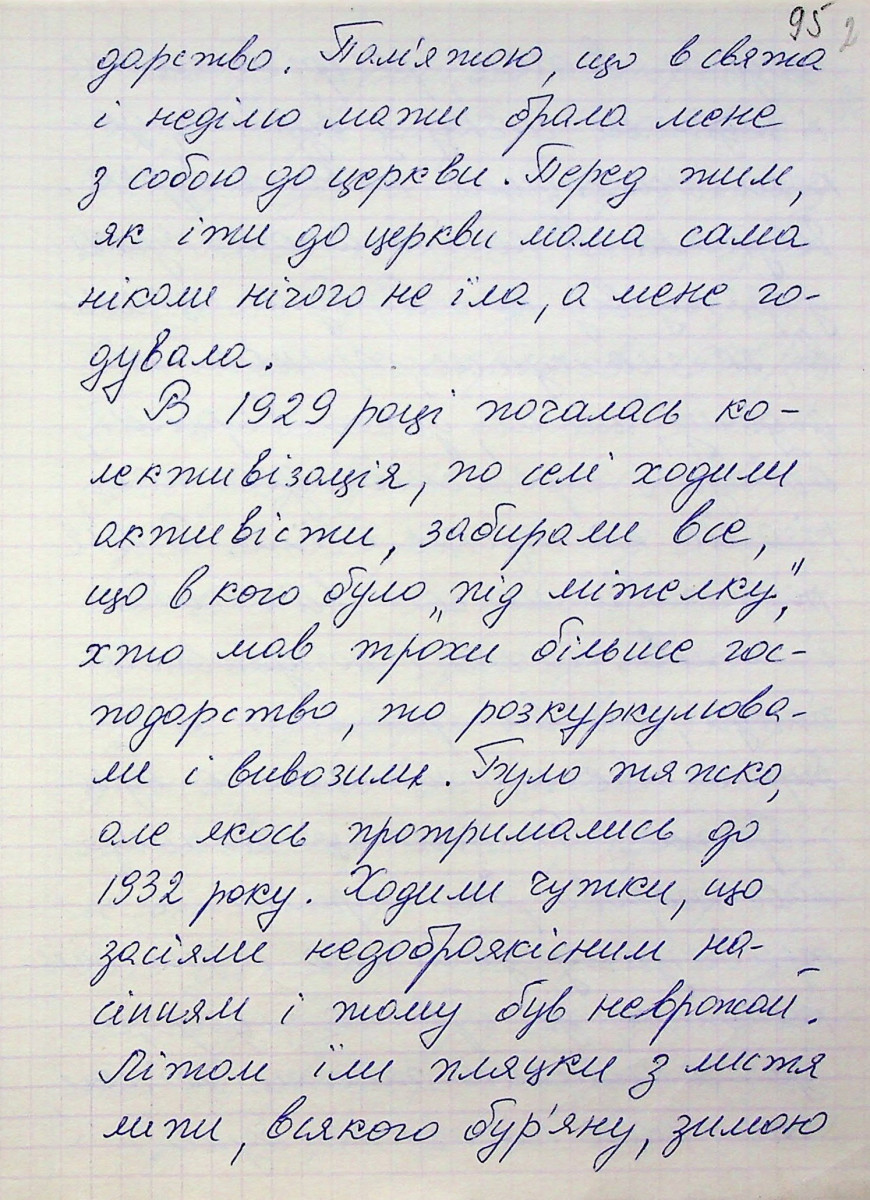 95 2
дарство. Пам'ятаю, що в свята
і неділю мати брала мене
з собою до церкви. Перед тим,
як іти до церкви мама сама
ніколи нічого не їла, а мене го-
дувала.
В 1929 році почалась ко-
лективізація, по селі ходили
активісти, забирали все,
що в кого було „під мітелку”,
хто мав трохи більше гос-
подарство, то розкуркулюва-
ли і вивозили. Було тяжко,
але якось протримались до
1932 року. Ходили чутки, що
засіяли недоброякісним на-
сінням і тому був неврожай.
Літом їли пляцки з листя
липи, всякого бур'яну, зимою